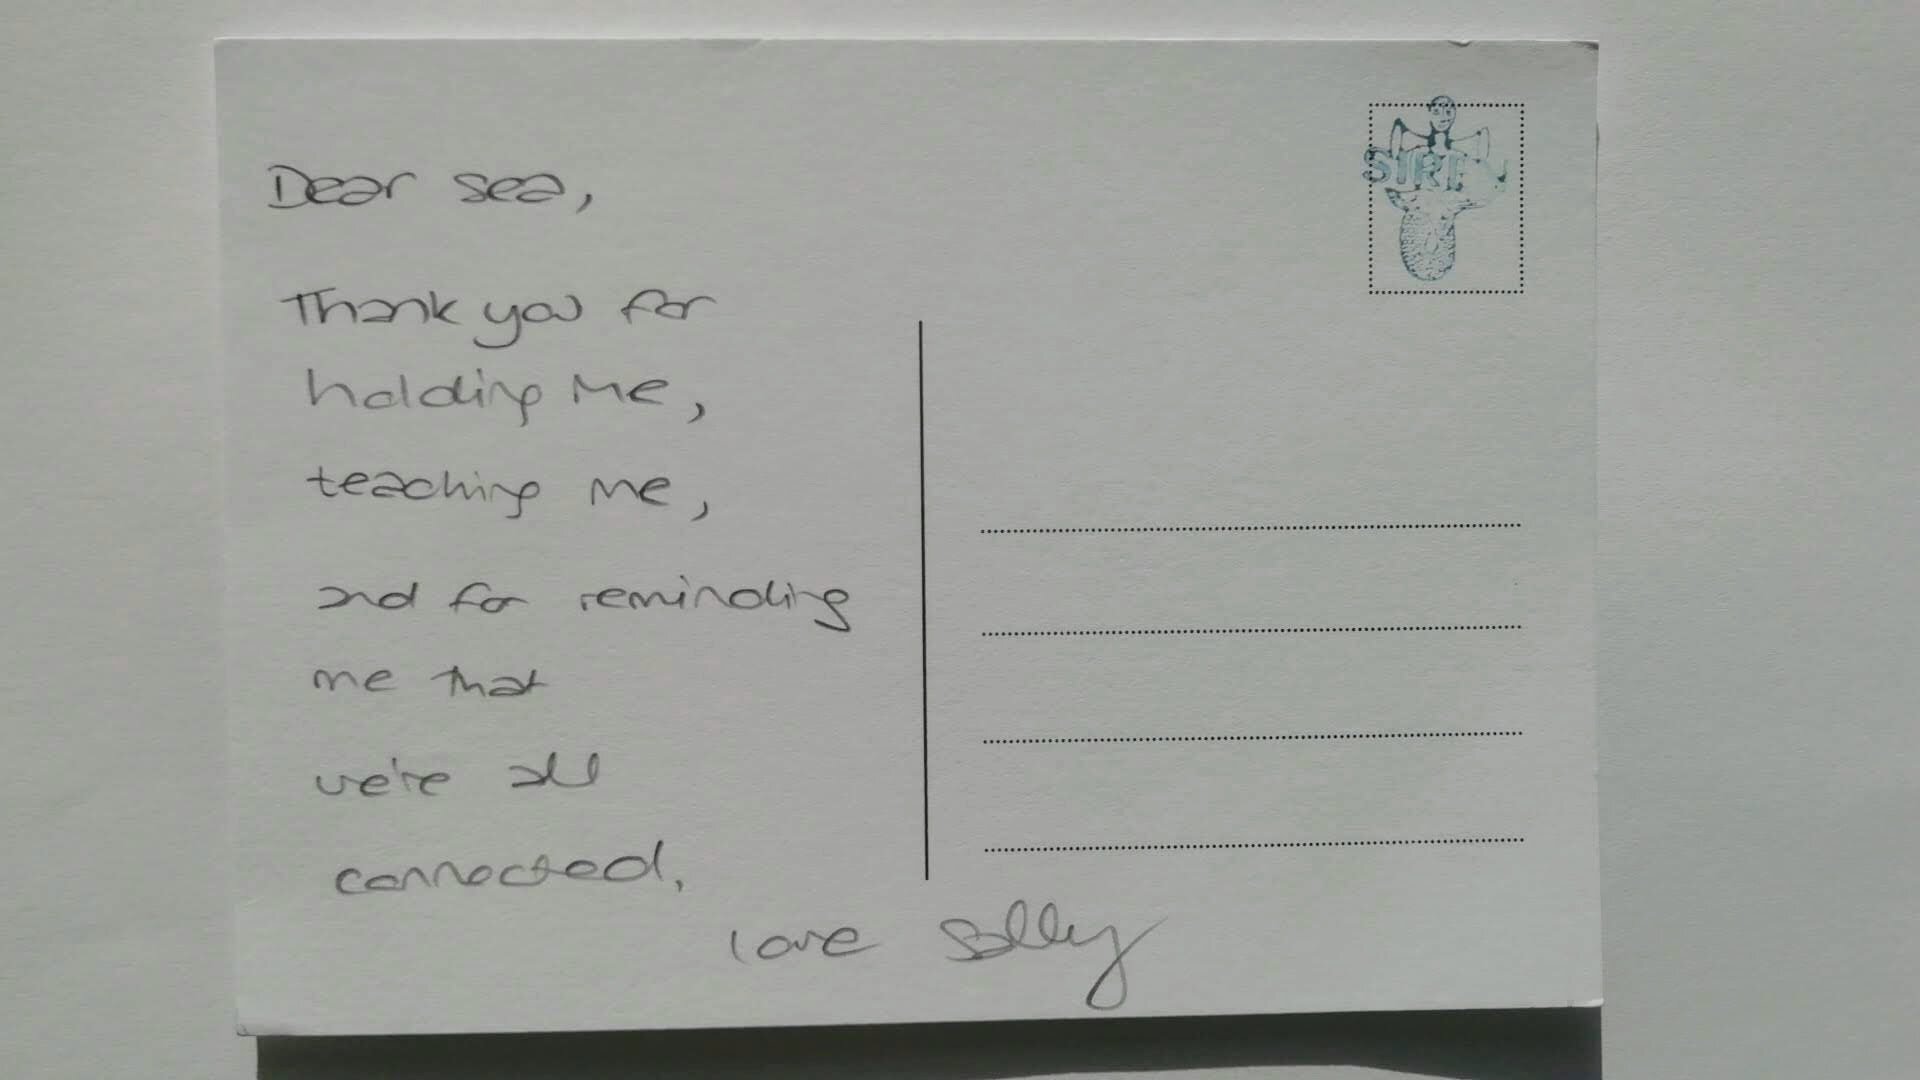 Dear sea,
Thank you for
holding me,
teaching me,
and for reminding
me that
we're all
connected,
love Sally
SIREN